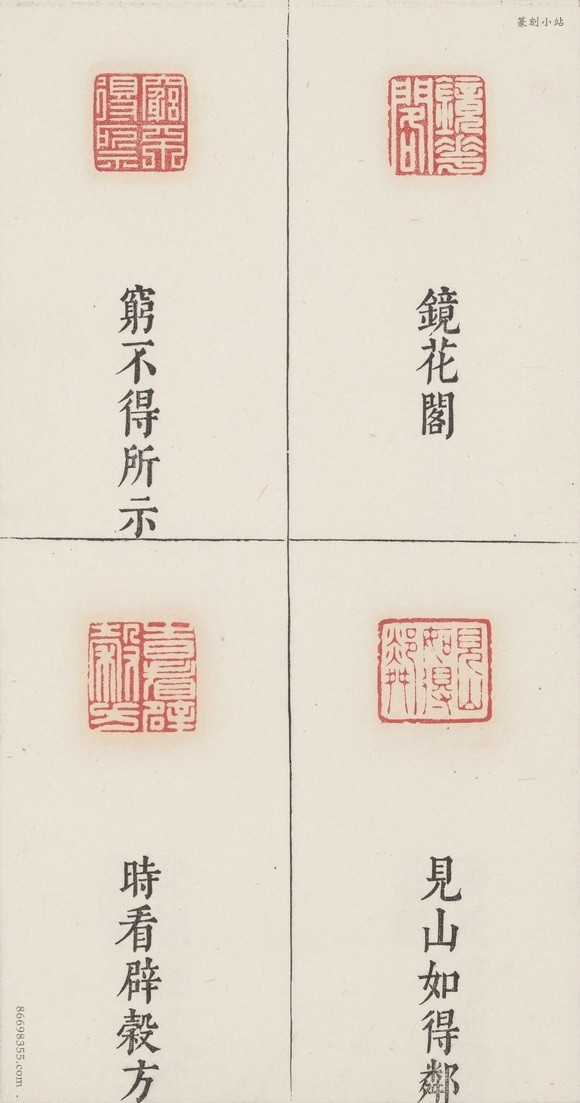 篆刻小站
鏡花閣
窮不得所示
見山如得鄰
時看辟穀方
86698355.com